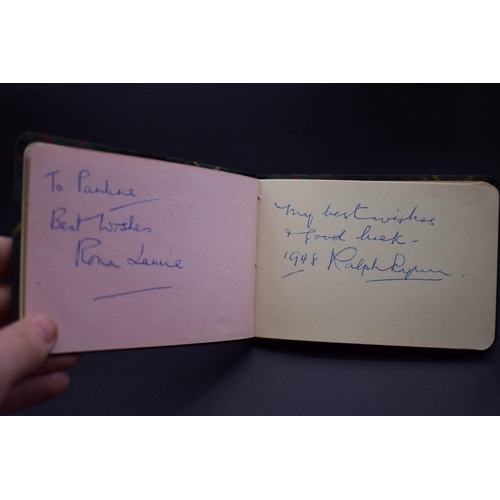 To Pauline
Best Wishes
Rona Laurie
My best wishes
& Good luck -
1948 Ralph Lynn.